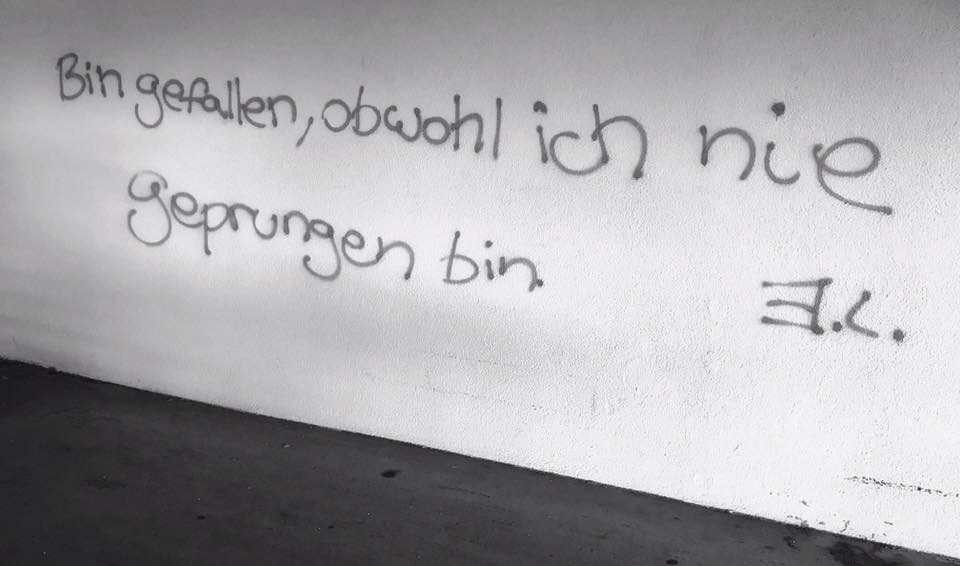 Bin gefallen, obwohl ich nie
geprungen bin.
E.L.